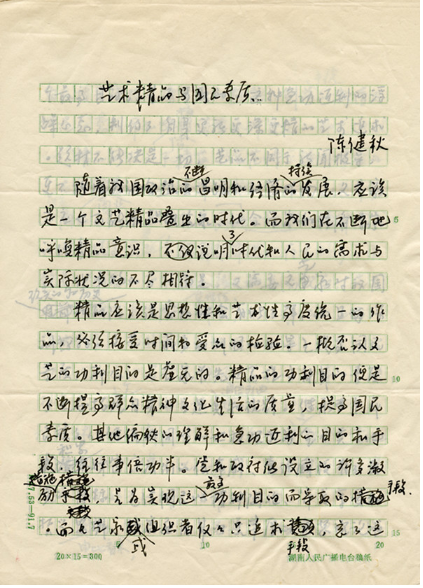 艺术精品与国民素质
陈健秋
不断 持续
随着我国政治的昌明和经济的发展，应该
是一个文艺精品叠出的时代。而我们在不断地
呼唤精品意识，不仅说明了时代和人民的需求与
实际状况的不尽相符。
精品应该是思想性和艺术性高度统一的作
品，必须接受时间和受众的检验。一概否认文
艺的功利目的是虚无的。精品的功利目的便是
不断提高群众精神文化生活的质量，提高国民
素质。其他偏狭的理解和急功近利的目的和手
段，往往事倍功半。党和政府所设立的许多激
励 是为实现这 功利目的而采取的措施
手段。
而文艺家或组织者仅仅只追求 ，忘了这
手段
5
10
15
20×15=300
湖南人民广播电台稿纸